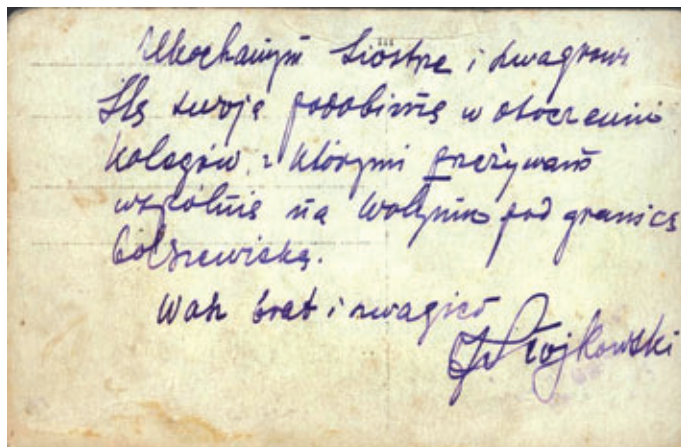 Ukochanym Siostrze i szwagrowi
Ślę swoją podobiznę w otoczeniu
kolegów, z którymi przeżywam
wspólnie na Wołyniu pod granicą
bolszewicką.
Wasz brat i szwagier